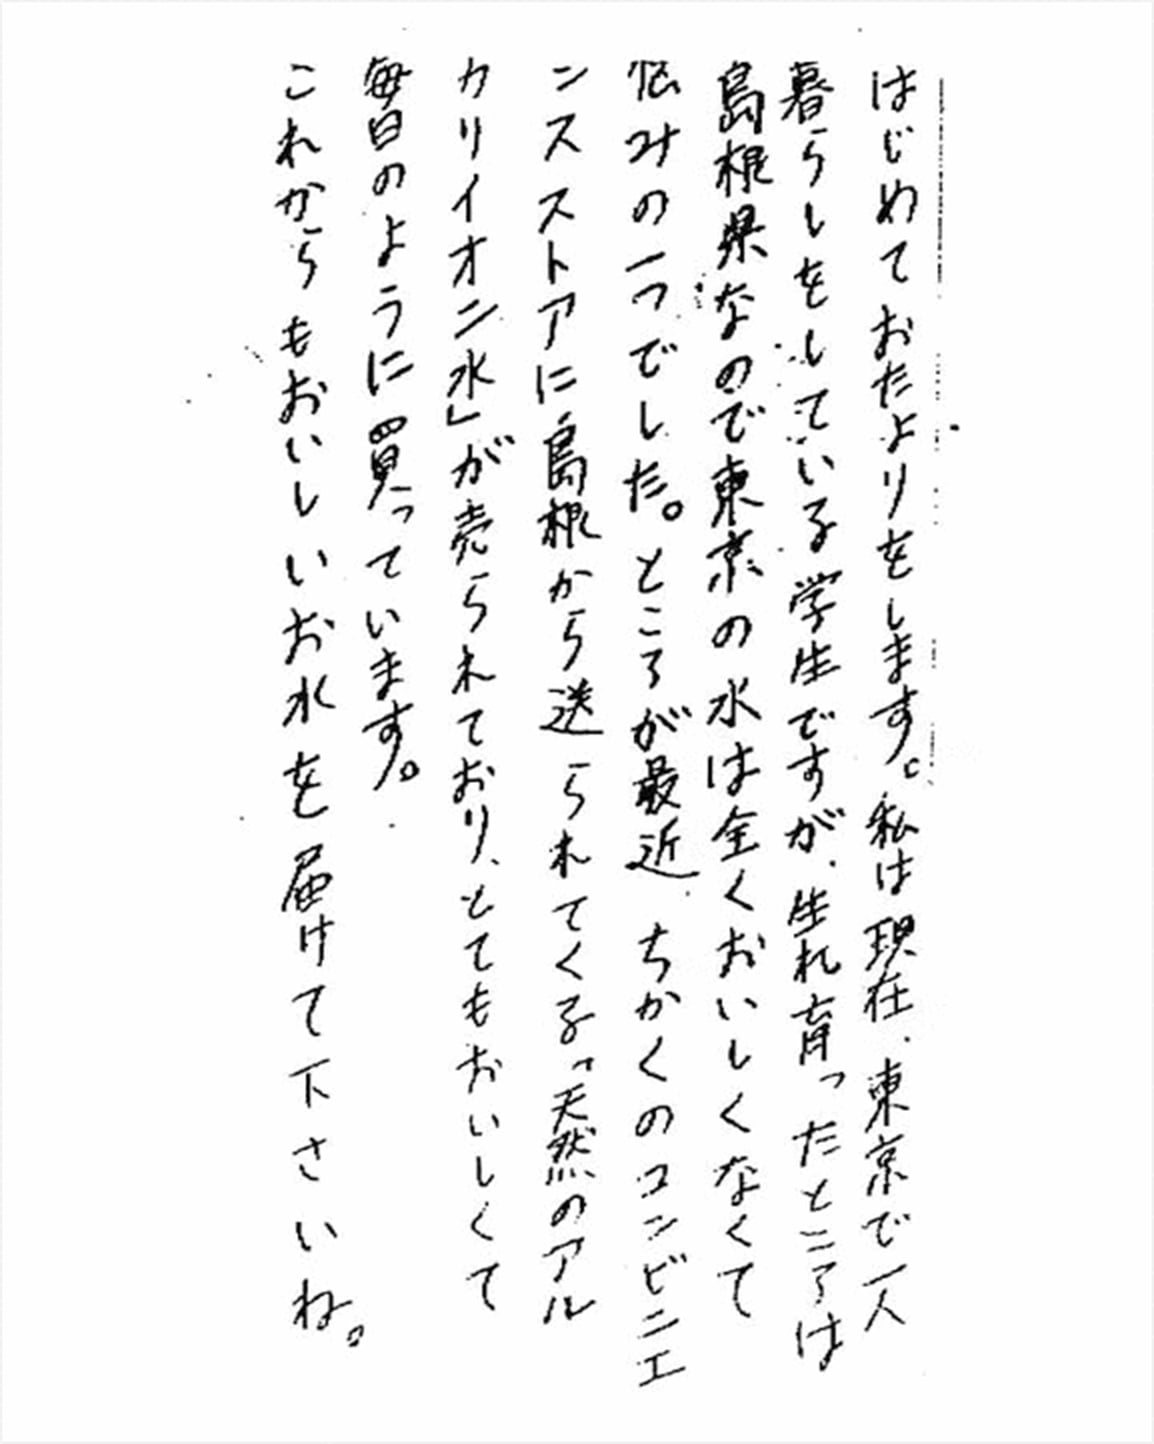 はじめておたよりをします。私は現在、東京で一人
暮らしをしている学生ですが、生れ育ったところは
島根県なので東京の水は全くおいしくなくて
悩みの一つでした。ところが最近、ちかくのコンビニエ
ンスストアに島根から送られてくる「天然のアル
カリイオン水」が売られており、とてもおいしくて
毎日のように買っています。
これからもおいしいお水を届けて下さいね。